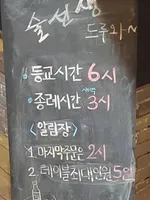 술선생
드루와~
등교시간 6시
새벽
종례시간 3시
<알림장>
1. 마지막주문은 2시
2. 테이블최대인원 5인